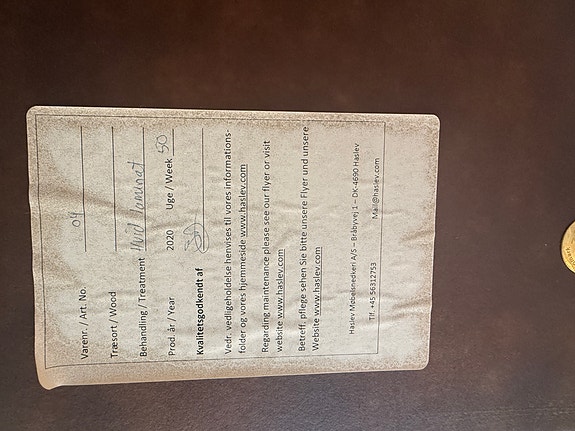 Varenr. / Art. No. 04
Træsort / Wood
Behandling / Treatment Hvid laminat
Prod. år / Year 2020 Uge / Week 50
Kvalitetsgodkendt af
Vedr. vedligeholdelse henvises til vores informations-
folder og vores hjemmeside www.haslev.com
Regarding maintenance please see our flyer or visit
website www.haslev.com
Betreff, pflege sehen Sie bitte unsere Flyer und unsere
Website www.haslev.com
Haslev Møbelsnedkeri A/S – Bråbyvej 1 – DK-4690 Haslev
Tlf. +45 56312753 Mail@haslev.com